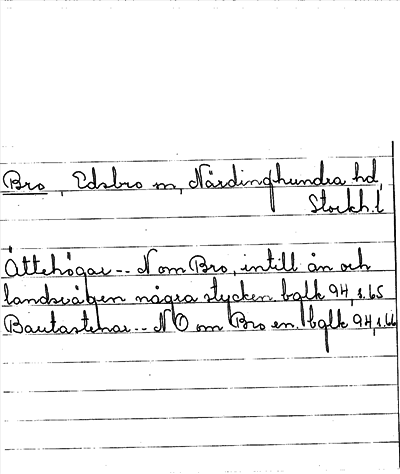 Bro, Edsbro sn, Närdinghundra hd,
Stockh. l
Ättehögar -- N om Bro, intill ån och
landsvägen några stycken. bglk 94, s. 65
Bautastenar -- NO om Bro en. bglk 94, s. 66